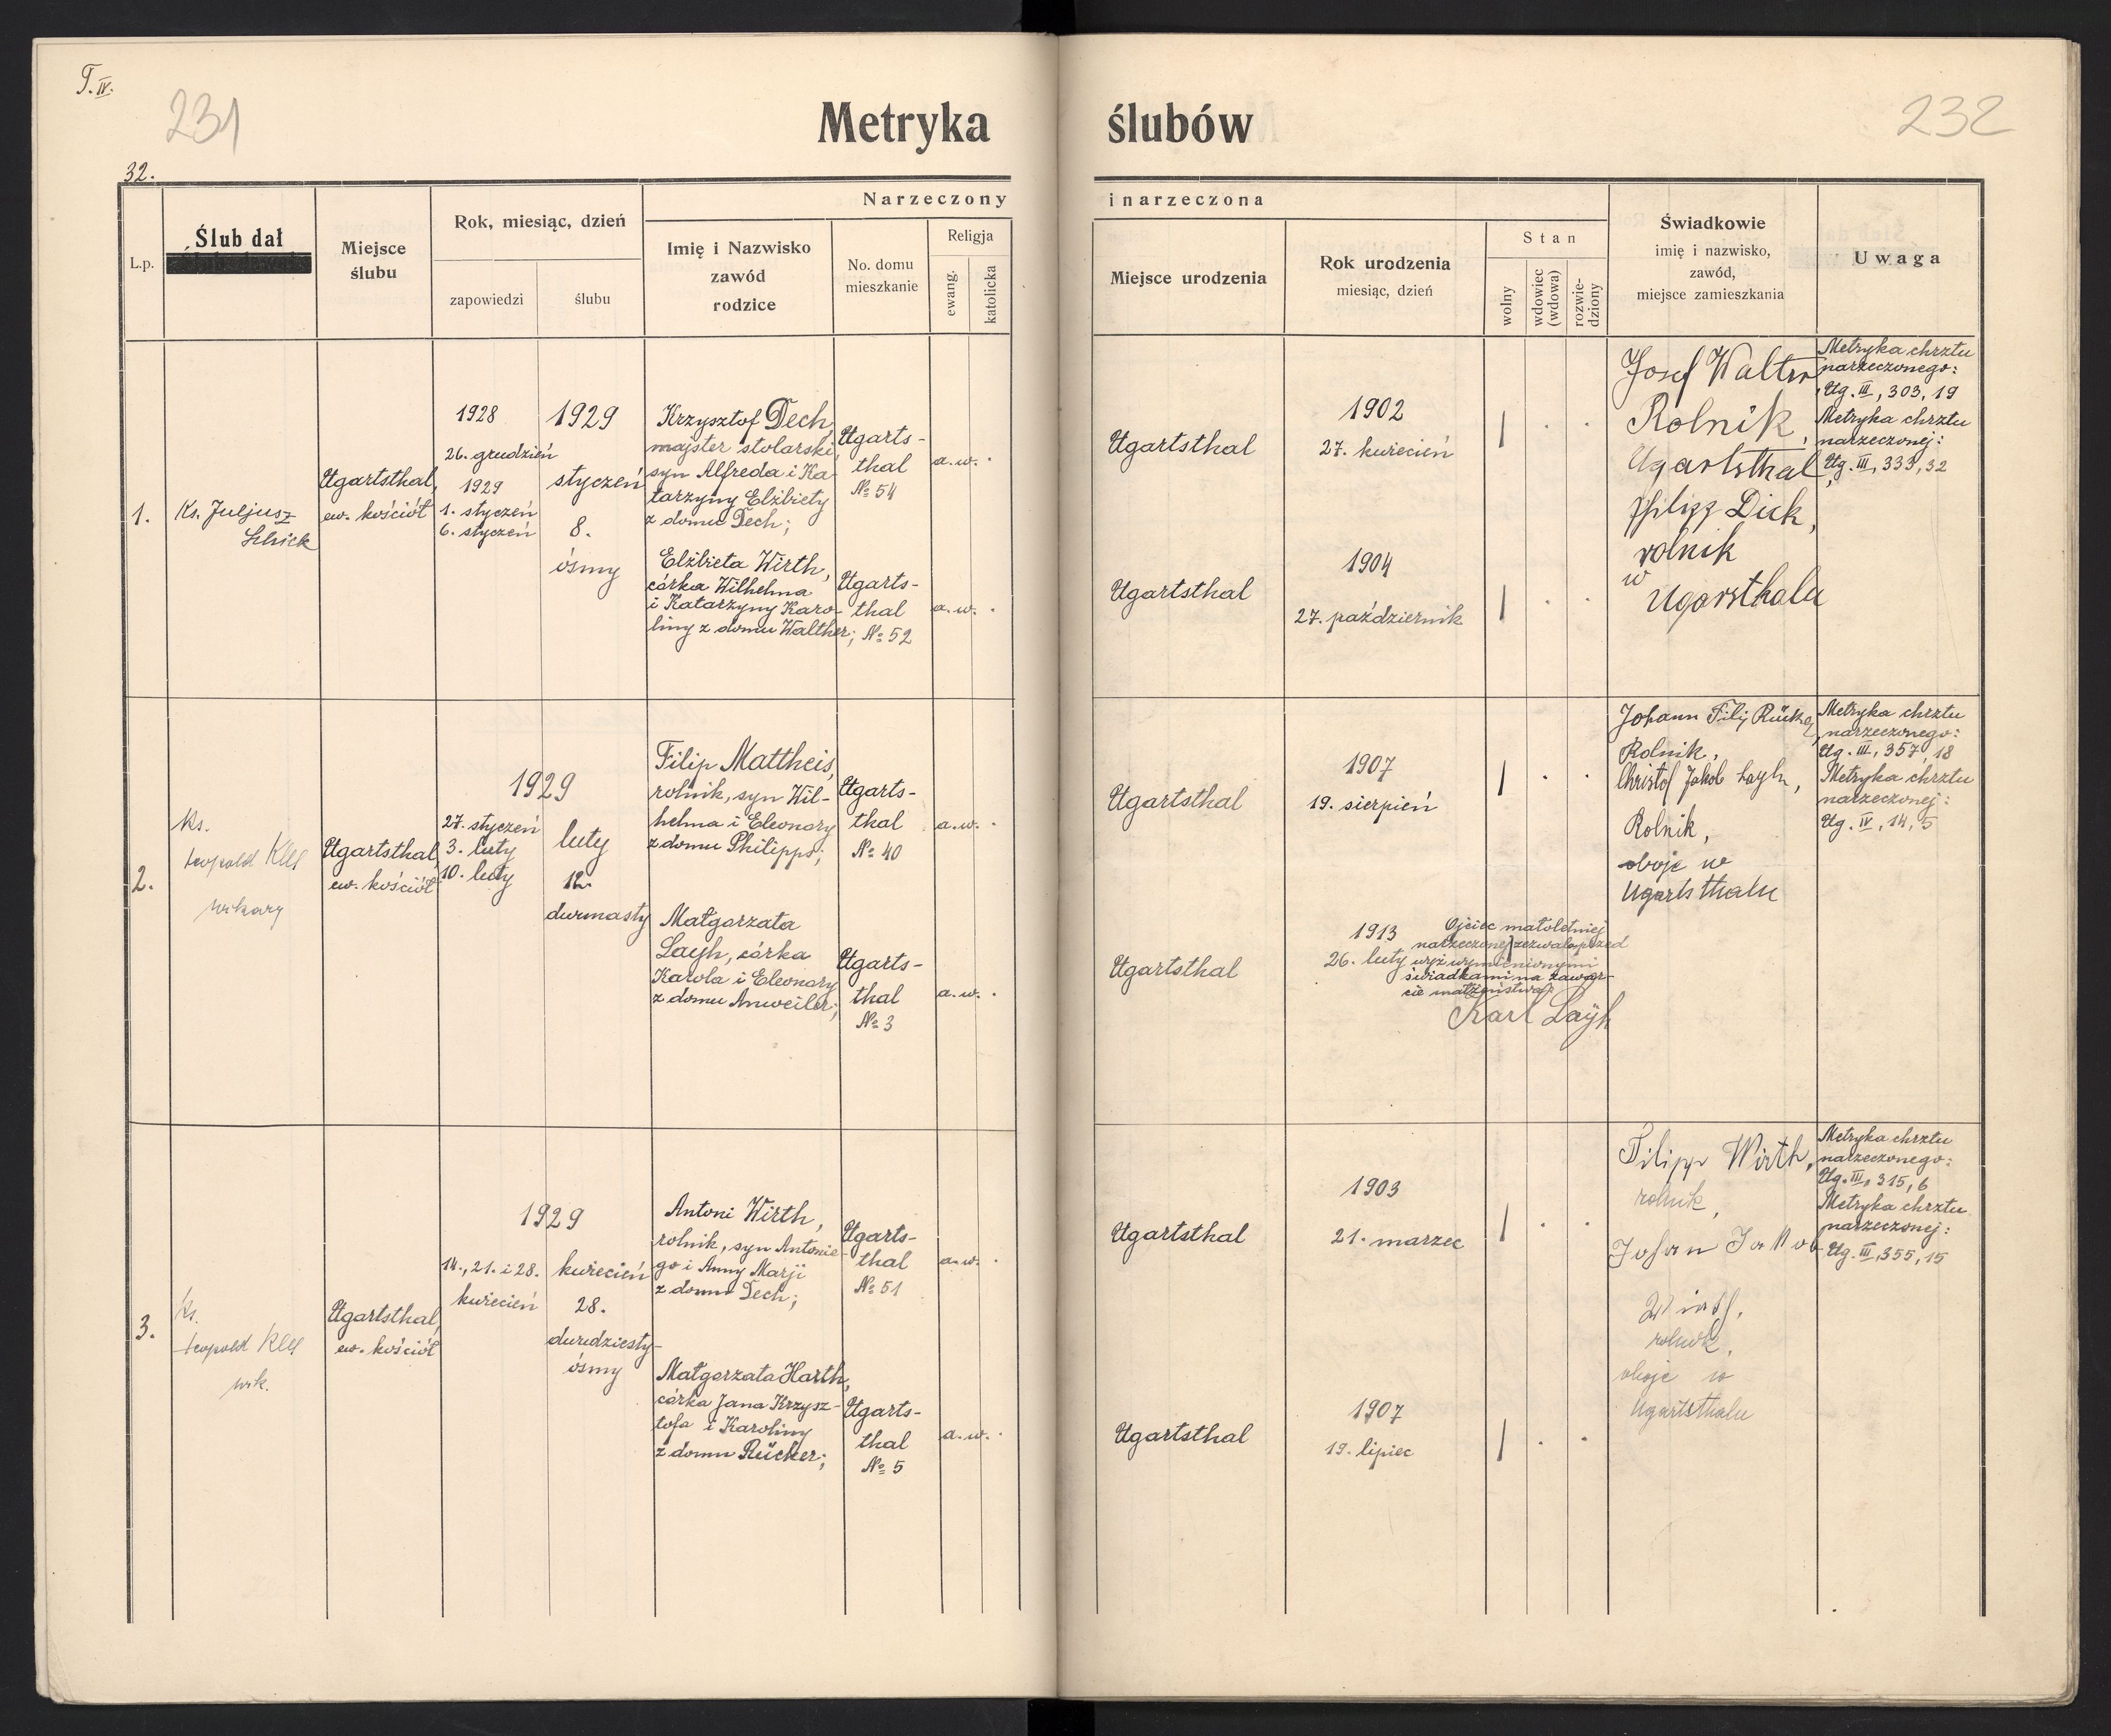 T. IV.
231
232
Metryka ślubów
32.
L.p.
Ślub dał
Miejsce
ślubu
Rok, miesiąc, dzień
zapowiedzi
ślubu
Narzeczony
i narzeczona
Imię i Nazwisko
zawód
rodzice
No. domu
mieszkanie
Religja
ewang.
katolicka
Miejsce urodzenia
Rok urodzenia
miesiąc, dzień
Stan
wolny
wdowiec
(wdowa)
rozwie-
dziony
Świadkowie
imię i nazwisko,
zawód,
miejsce zamieszkania
Uwaga
1.
Ks. Juljusz
Schick
Ugartsthal,
ew. kościół
1928
26. grudzień
1929
1. styczeń
6. styczeń
1929
styczeń
8.
ósmy
Krzysztof Dech,
majster stolarski,
syn Alfreda i Ka-
tarzyny Elżbiety
z domu Dech;
Ugarts-
thal
№ 54
a.w. ·
Elżbieta Wirth,
córka Wilhelma
i Katarzyny Karo-
liny z domu Walther;
Ugarts-
thal
№ 52
a.w. ·
Ugartsthal
1902
27. kwiecień
| · ·
Ugartsthal
1904
27. październik
| · ·
Josef Walter
Rolnik,
Ugartsthal,
Philipp Dick,
rolnik
w
Ugarsthalu
Metryka chrztu
narzeczonego:
Ug. III, 303, 19
Metryka chrztu
narzeczonej:
Ug. III, 333, 32
2.
Ks.
Leopold Klee
wikary
Ugartsthal,
ew. kościół
1929
27. styczeń
3. luty
10. luty
luty
12.
dwunasty
Filip Mattheis,
rolnik, syn Wil-
helma i Eleonory
z domu Philipps;
Ugarts-
thal
№ 40
a.w. ·
Małgorzata
Layh, córka
Karola i Eleonory
z domu Anweiler;
Ugarts-
thal
№ 3
a.w. ·
Ugartsthal
1907
19. sierpień
| · ·
Ugartsthal
1913
26. luty
Ojciec małoletniej
narzeczonej zezwala przed
wyż wymienionymi
świadkami na zawar-
cie małżeństwa:
Karl Layh
Johann Filip
Rolnik,
Christof Jakob Layh,
Rolnik,
oboje w
Ugartsthalu
Metryka chrztu
narzeczonego:
Ug. III, 357, 18
Metryka chrztu
narzeczonej:
Ug. IV, 14, 5
3.
Ks.
Leopold Klee
wik.
Ugartsthal,
ew. kościół
1929
14., 21. i 28.
kwiecień
kwiecień
28.
dwudziesty-
ósmy
Antoni Wirth,
rolnik, syn Antonie-
go i Anny Marji
z domu Dech;
Ugarts-
thal
№ 51
a.w. ·
Małgorzata Harth,
córka Jana Krzysz-
tofa i Karoliny
z domu Rücker;
Ugarts-
thal
№ 5
a.w. ·
Ugartsthal
1903
21. marzec
| · ·
Ugartsthal
1907
19. lipiec
| · ·
Filipp Wirth,
rolnik,
Johan Jakob
rolnik,
oboje w
Ugartsthalu
Metryka chrztu
narzeczonego:
Ug. III, 315, 6
Metryka chrztu
narzeczonej:
Ug. III, 355, 15